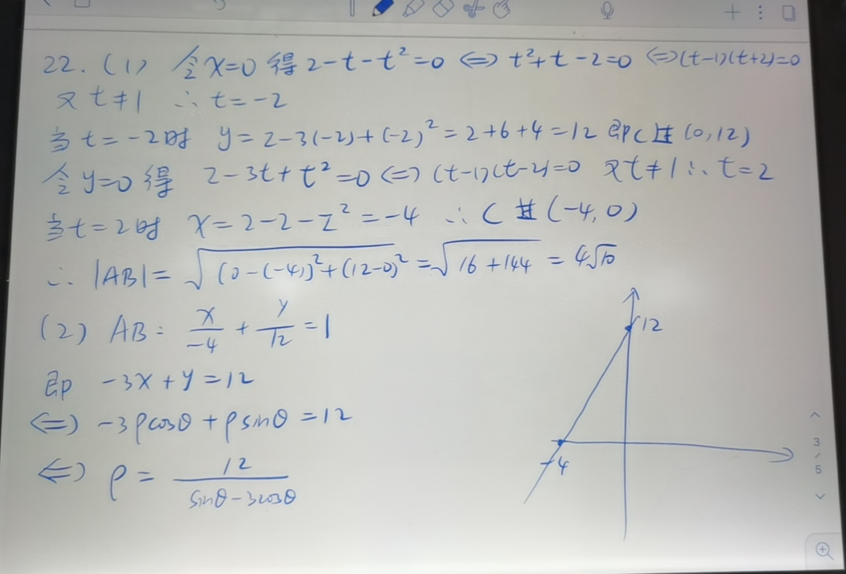 22. (1) 令x=0 得 2-t-t²=0 ⇔ t²+t-2=0 ⇔ (t-1)(t+2)=0
又 t≠1 ∴ t=-2
当t=-2时 y=2-3(-2)+(-2)²=2+6+4=12 即C过(0,12)
令y=0 得 2-3t+t²=0 ⇔ (t-1)(t-2)=0 又t≠1 ∴ t=2
当t=2时 x=2-2-2²=-4 ∴ C过(-4,0)
∴ |AB|=√(0-(-4))²+(12-0)²=√16+144=4√10
(2) AB: x/-4 + y/12 =1
即 -3x+y=12
⇔ -3ρcosθ+ρsinθ=12
⇔ ρ= 12/sinθ-3cosθ
12
-4
3
/
5